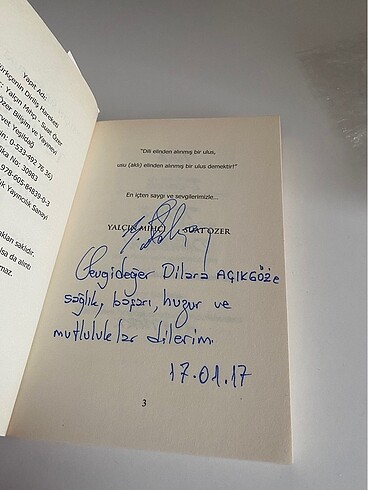 Yapıt Adı:
Türkçenin Diriliş Hareketi
Yalçın Mıhçı - Suat Özer
Özer Bilişim ve Yayınevi
0-533-492 5 36)
No: 30983
978-605-84839-0-3
Yayıncılık Sanayi
saklıdır.
olsa da alıntı
"Dili elinden alınmış bir ulus,
usu (aklı) elinden alınmış bir ulus demektir!"
En içten saygı ve sevgilerimizle...
YALÇIN MIHÇI SUAT ÖZER
Sevgideğer Dilara AÇIKGÖZ'e
sağlık, başarı, huzur ve
mutluluklar dilerim.
17.01.17
3